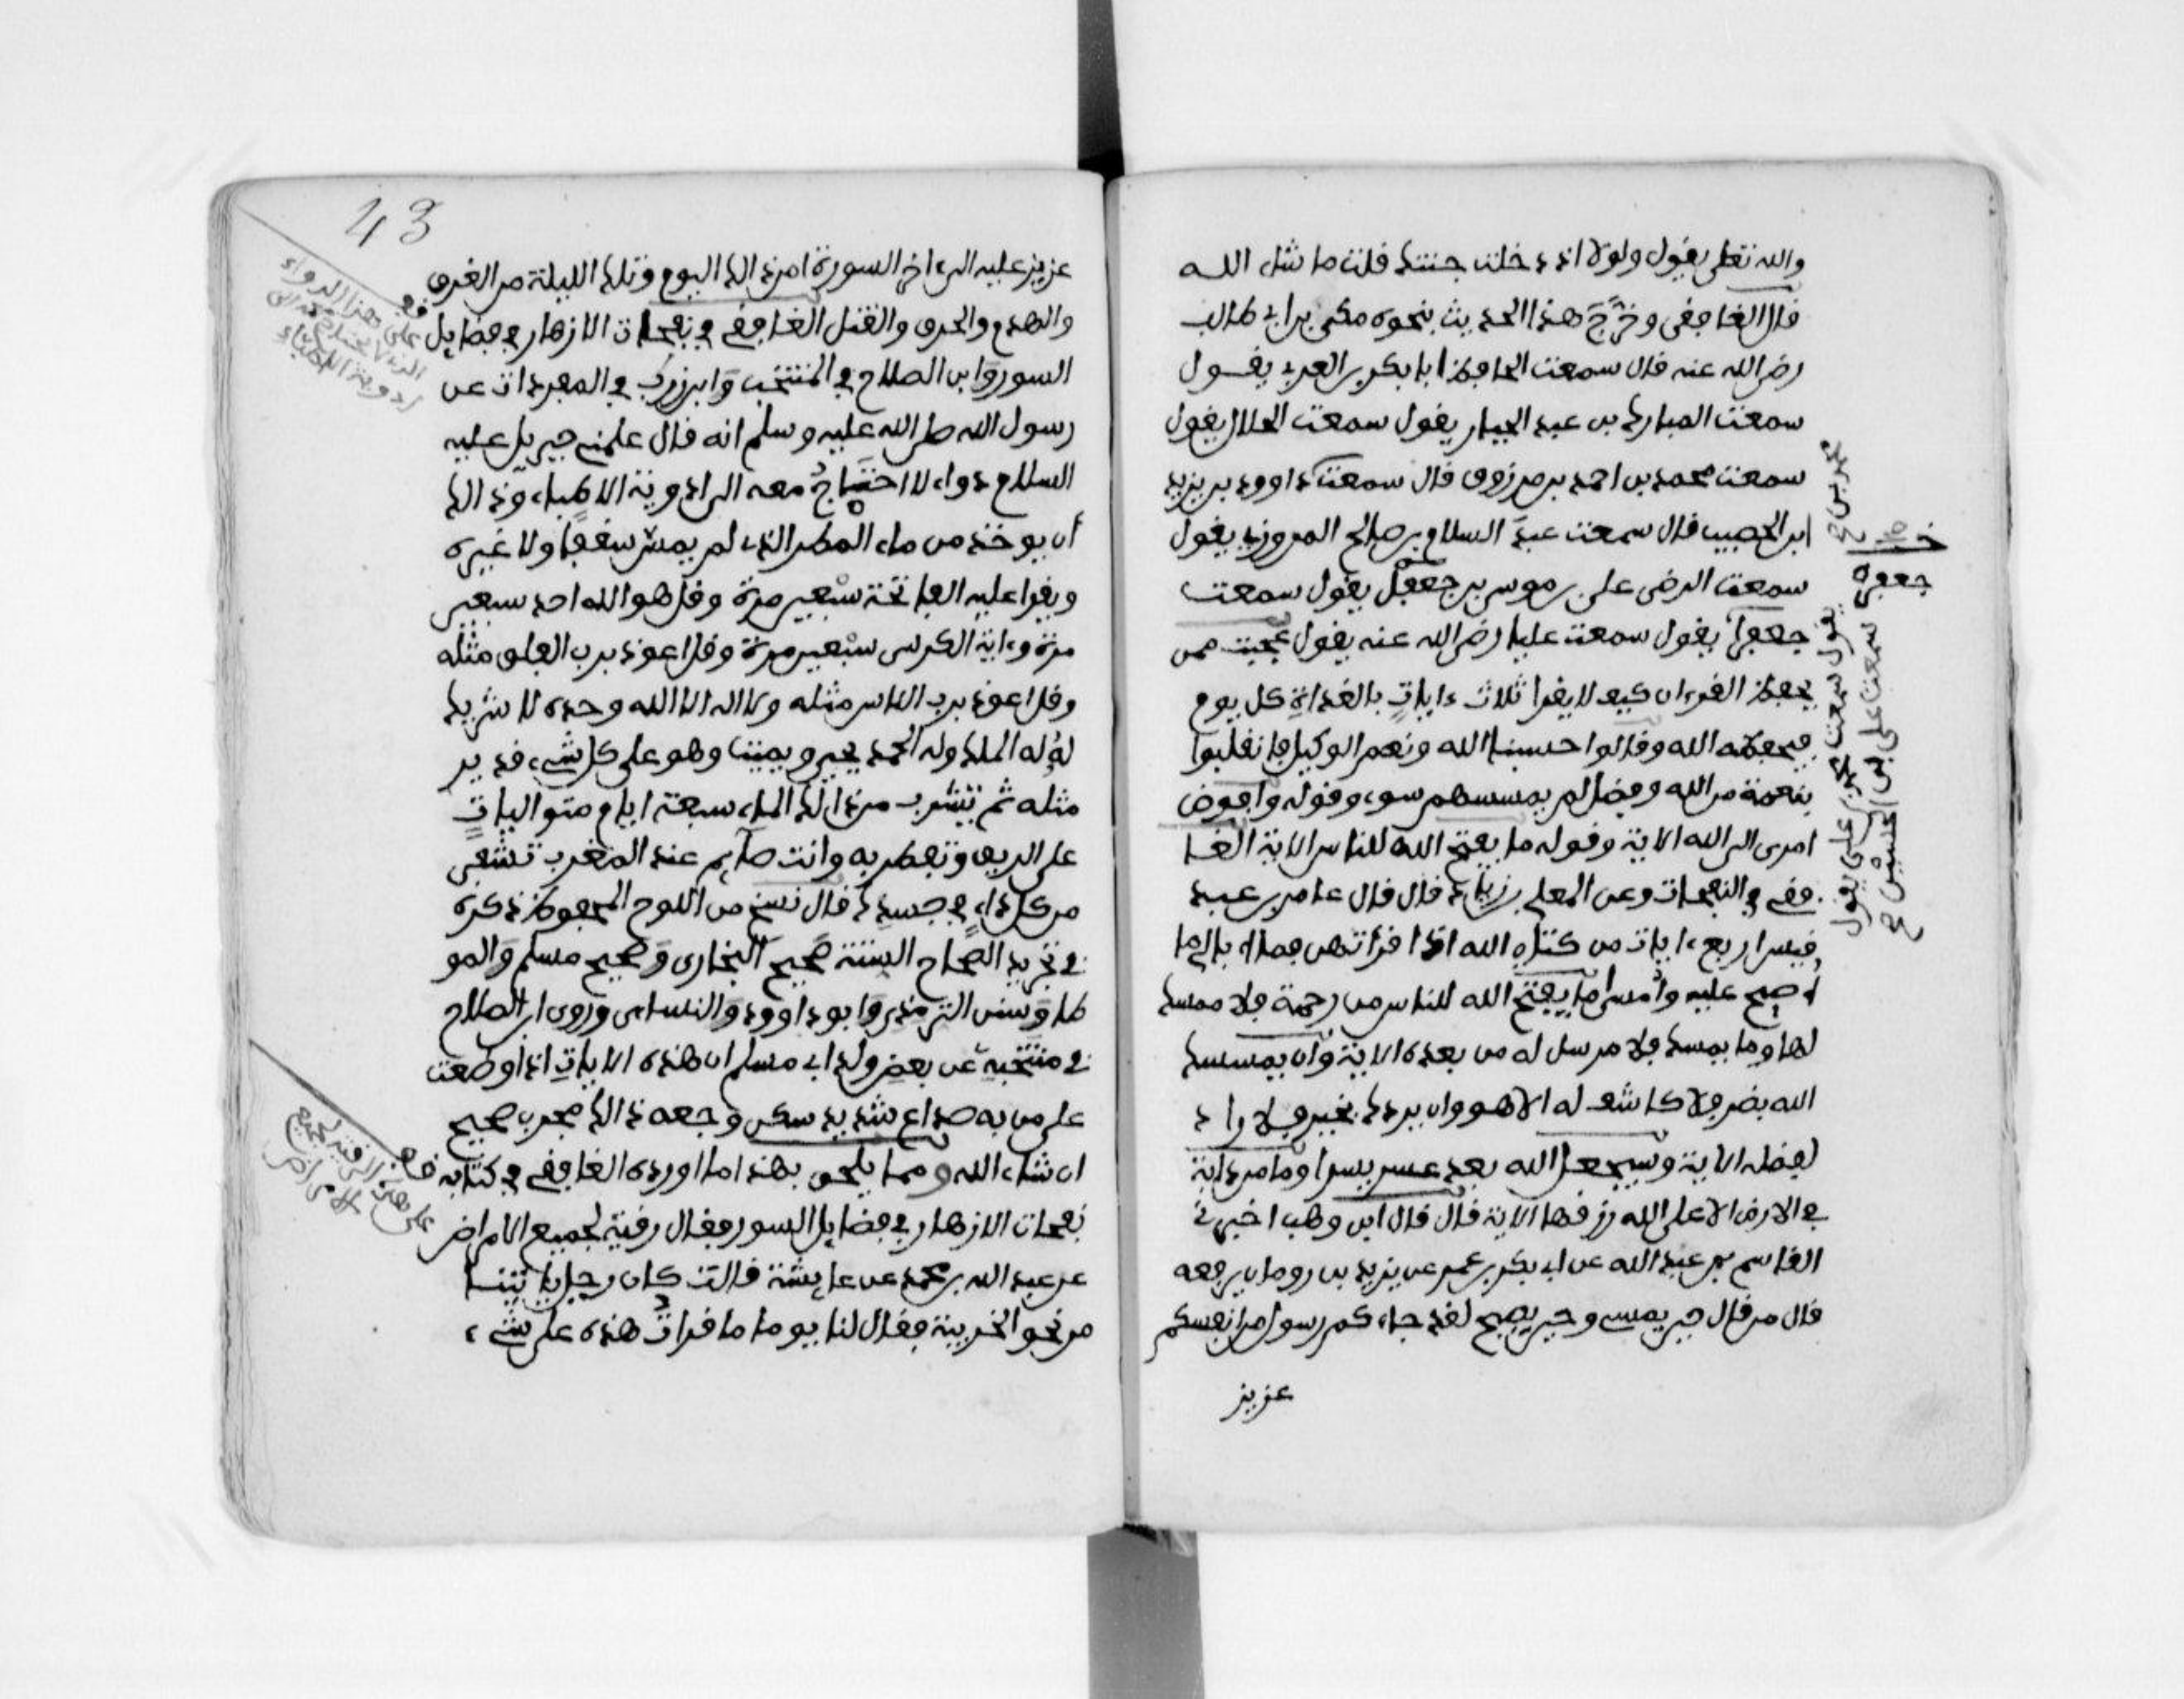 والله تعلى يقول ولولا اذ دخلت جنتك قلت ما شاء الله
قال الغافقي وخرج هذا الحديث بنحوه مكي بن ابي طالب
رضي الله عنه قال سمعت الحافظ ابا بكر بن العربي يقول
سمعت المبارك بن عبد الجبار يقول سمعت الخلال يقول
سمعت محمد بن احمد بن مرزوق قال سمعت داوود بن يزيد
ابن الخصيب قال سمعت عبد السلام بن صالح المروزي يقول
سمعت الرضى علي بن موسى بن جعفر يقول سمعت
جعفرا يقول سمعت عليا رضي الله عنه يقول عجبت ممن
يحفظ القرءان كيف لا يقرا ثلاث ءايات بالغداة كل يوم
فيحفظه الله وقالوا حسبنا الله ونعم الوكيل فانقلبوا
بنعمة من الله وفضل لم يمسسهم سوء وقوله وافوض
امري الى الله الاية وقوله ما يفتح الله للناس الاية الغا
فقي في النفحات وعن المعلى بن زياد قال قال عامر بن عبد
قيس اربع ءايات من كتاب الله اذا قراتهن فما ابالي ما
اصبح عليه وامسى ما يفتح الله للناس من رحمة فلا ممسك
لها وما يمسك فلا مرسل له من بعده الاية وان يمسسك
الله بضر فلا كاشف له الا هو وان يردك بخير فلا راد
لفضله الاية وسيجعل الله بعد عسر يسرا وما من دابة
في الارض الا على الله رزقها الاية قال قال ابن وهب اخبرني
القاسم بن عبد الله عن ابي بكر بن عمر عن يزيد بن رومان يرفعه
قال من قال حين يمسي وحين يصبح لقد جاءكم رسول من انفسكم
عزيز
جعفر
يقول سمعت علي يقول
سمعت علي بن الحسين
43
عزيز عليه الى ءاخر السورة امن ذالك اليوم وتلك الليلة من الغرق
والهدم والحرق والقتل الغافقي في نفحات الازهار في فضايل
السور وابن الصلاح في المنتخب وابن زرق في المفردات عن
رسول الله صلى الله عليه وسلم انه قال علمني جبريل عليه
السلام دواء لا احتاج معه الى ادوية الاطباء وذالك
أن يوخذ من ماء المطر الذي لم يمس سقفا ولا غيره
ويقرا عليه الفاتحة سبعين مرة وقل هو الله احد سبعين
مرة وءاية الكرسي سبعين مرة وقل اعوذ برب الفلق مثله
وقل اعوذ برب الناس مثله ولا اله الا الله وحده لا شريك
له له الملك وله الحمد يحيي ويميت وهو على كل شيء قدير
مثله ثم تشرب من ذالك الماء سبعة ايام متواليات
على الريق وتفطر به وانت صايم عند المغرب تشفى
من كل داء في جسدك قال نسخ من اللوح المحفوظ ذكره
في تجريد الصحاح الستة صحيح البخاري وصحيح مسلم والمو
طا وسنن الترمذي وابو داوود والنساءي وروى ابن الصلاح
في منتخبه عن بعض ولد ابي مسلم ان هذه الايات اذا وضعت
على من به صداع شديد سكن وجعه ذالك مجرب صحيح
ان شاء الله ومما يلحق بهذا ما اورده الغافقي في كتابه
نفحات الازهار في فضايل السور فقال رقية لجميع الامراض
عن عبد الله بن محمد عن عايشة قالت كان رجل ياتينا
من نحو الخريبة فقال لنا يوما ما قرات هذه على شيء
قف
على هذا الدواء
الذي لا يحتاج معه الى
ادوية الاطباء
قف
على هذه الرقية لجميع
الامراض